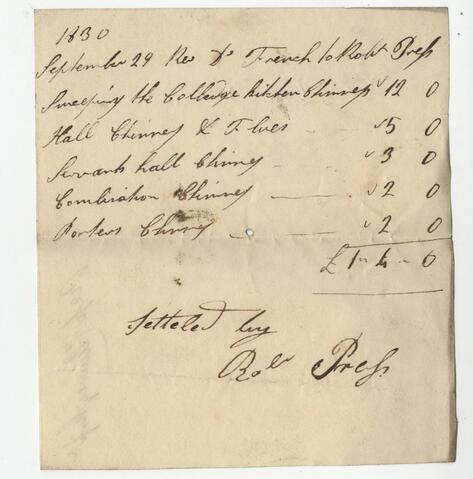 1830
September 29 Rev Dr French to Robt Press
Sweeping the Colledge kitchen Chimney 12 0
Hall Chimney & Flues 5 0
Servants hall Chimney 3 0
Combination Chimney 2 0
Porters Chimney 2 0
£ 1 - 4 - 0
Setteled by
Robt Press